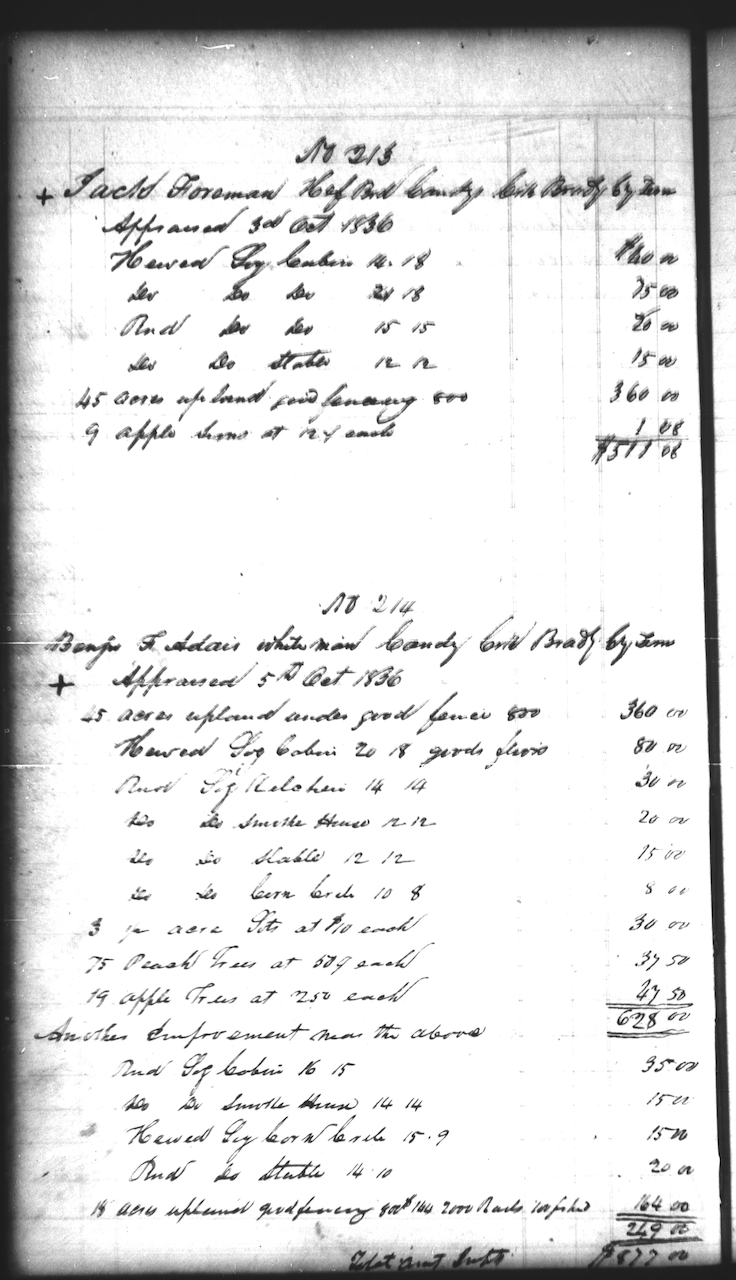 No 213
+ Jack Foreman Half Brd Candys Crk Bradly Cty Tenn
Appraised 3rd Oct 1836
Hewed Log Cabin 14. 18 $40 00
Do Do Do 18 75 00
Rnd Do Do 15 15 20 00
Do Do Stable 12 12 15 00
45 acres upland good fencing 800 360 00
9 apple trees at 12 each 1 08
$511 08
No 214
Benjn F. Adair white man Candy Crk Bradly Cty Tenn
+ Appraised 5th Oct 1836
45 acres upland under good fence 800 360 00
Hewed Log Cabin 20 18 goods floors 80 00
Rnd Log Kitchen 14 14 30 00
Do Do Smoke House 12 12 20 00
Do Do Stable 12 12 15 00
Do Do Corn Crib 10 8 8 00
3 acre lots at $10 each 30 00
75 Peach Trees at 50¢ each 37 50
19 apple Trees at 250 each 47 50
628 00
Another Improvement near the above
Rnd Log Cabin 16 15 35 00
Do Do Smoke House 14 14 15 00
Hewed Log Corn Crib 15. 9 15 00
Rnd Do Stable 14 10 20 00
18 acres upland good fencing 800$ 144 2000 Rails 164 00
249 00
Total amt $877 00